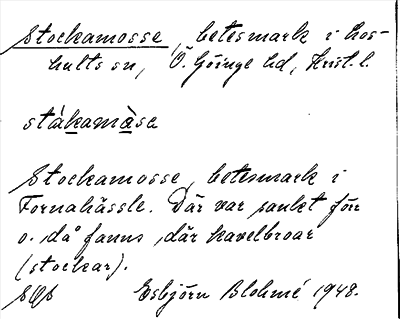 Stockamosse, betesmark i Hos-
hults sn, Ö. Göinge hd, Krist. l.
stàkamàsa
Stockamosse, betesmark i
Tornahässle. Där var sankt förr
o. då fanns där kavelbroar
(stockar).
Esbjörn Blohmé 1948.